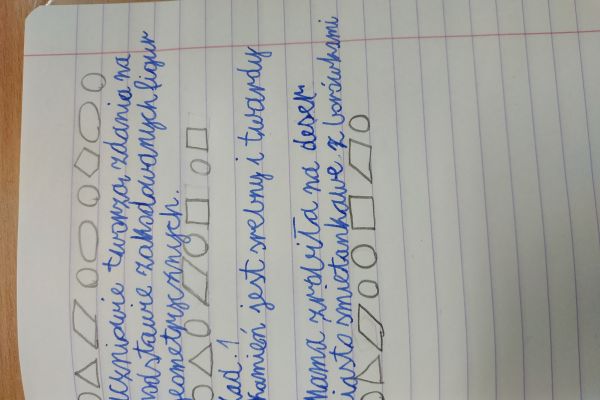 uczniowie tworzą zdania na
podstawie zakodowanych figur
geometrycznych.
Zad. 1
Kamień jest srebny i twardy
Mama zrobiła na deser
ciasto smietankowe z borówkami